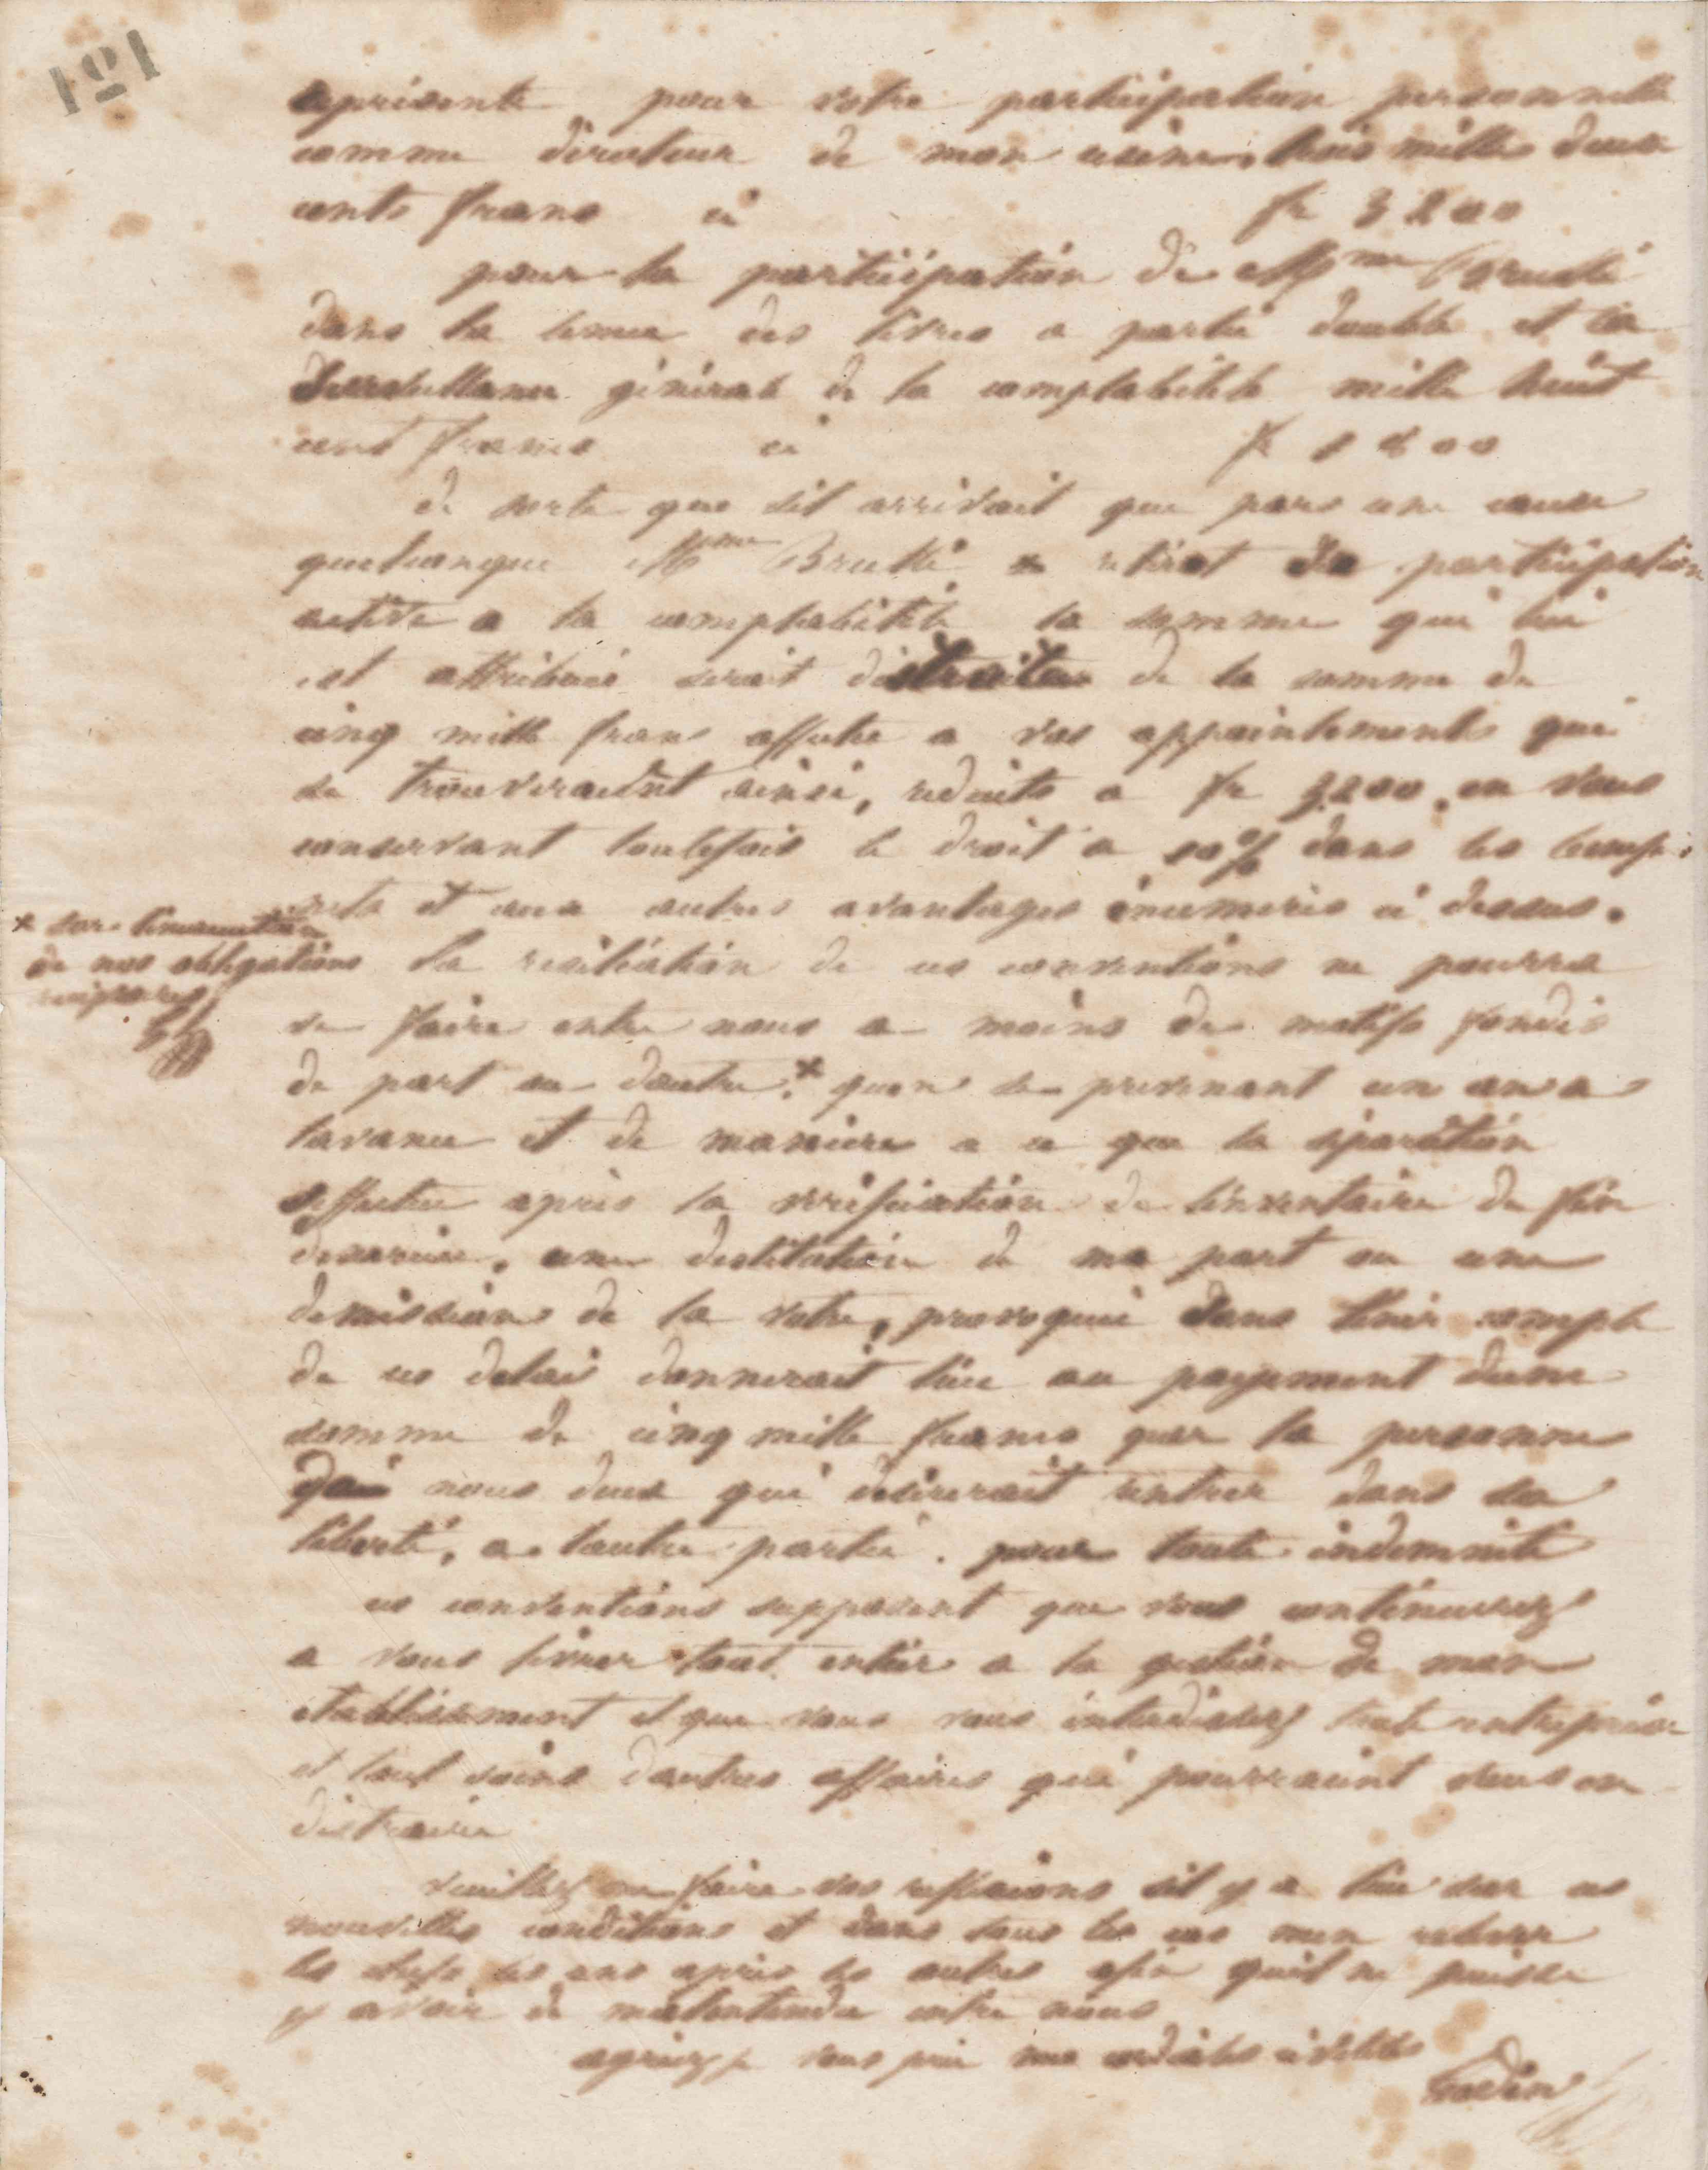 121
représente pour votre participation personnelle
comme directeur de mon usine, trois mille deux
cents francs ci fr 3200
pour la participation de Mme Brullé
dans la tenue des livres a partie double et la
surveillance général de la comptabilité mille huit
cent francs ci fr 1800
de sorte que sil arrivait que par une cause
quelconque Mme Brullé retirat sa participation
active a la comptabilité la somme qui lui
est attribuée serait distraite de la somme de
cinq mille francs affectée a vos appointements qui
se trouveraient ainsi, reduits a fr 3200, en vous
conservant toutefois le droit a 10% dans les
et aux autres avantages énumérés ci dessus.
x
de nos obligations
réciproques
La resiliation de ces conventions ne pourra
se faire entre nous a moins de motifs fondés
de part ou dautre, x quen se prevenant un an a
lavance et de maniere a ce que la séparation
seffectue après la vérification de linventaire de fin
dexercice, une destitution de ma part ou une
demission de la votre, provoquée sans tenir compte
de ces delais donnerait lieu au payement dune
somme de cinq mille francs par la personne
de nous deux qui désirerait rentrer dans sa
liberté, a lautre partie. pour toute indemnité
ces conventions supposent que vous continuerez
a vous livrer tout entier a la gestion de mon
établissement et que vous vous interdisez toute entreprise
et tout soins dautres affaires qui pourraient vous en
distraire
veuillez me faire vos reflexions sil y a lieu sur ces
nouvelles conditions et dans tous les cas men relever
les chefs les uns après les autres afin quil ne puisse
y avoir de malentendu entre nous
agréez je vous prie mes cordiales civilités
Godin